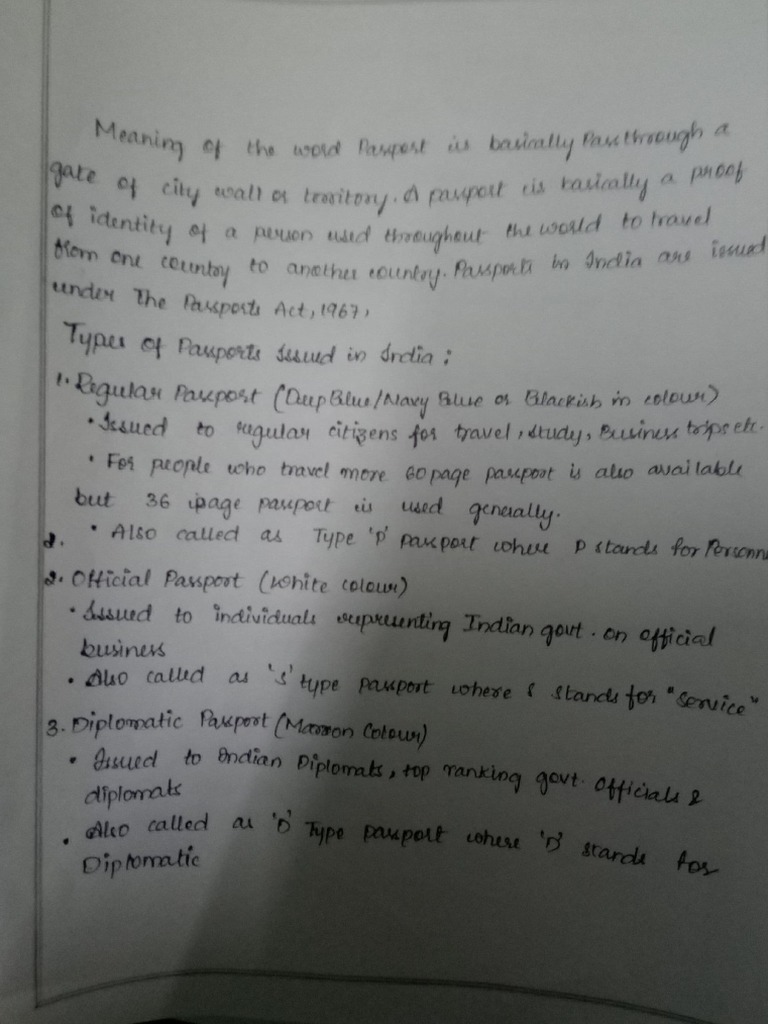 Meaning of the word Passport is basically Pass through a
gate of city wall or territory. A passport is basically a proof
of identity of a person used throughout the world to travel
from one country to another country. Passports in India are issued
under The Passports Act, 1967,
Types of Passports Issued in India :
1. Regular Passport (Deep Blue/Navy Blue or Blackish in colour)
• Issued to regular citizens for travel, study, Business trips etc.
• For people who travel more 60 page passport is also available
but 36 page passport is used generally.
2. • Also called as Type 'P' passport where P stands for Personn
2. Official Passport (White colour)
• Issued to individuals representing Indian govt. on official
business
• Also called as 'S' type passport where S stands for "Service"
3. Diplomatic Passport (Maroon Colour)
• Issued to Indian Diplomats, top ranking govt. Officials &
diplomats
• Also called as 'D' Type passport where 'D' stands for
Diplomatic